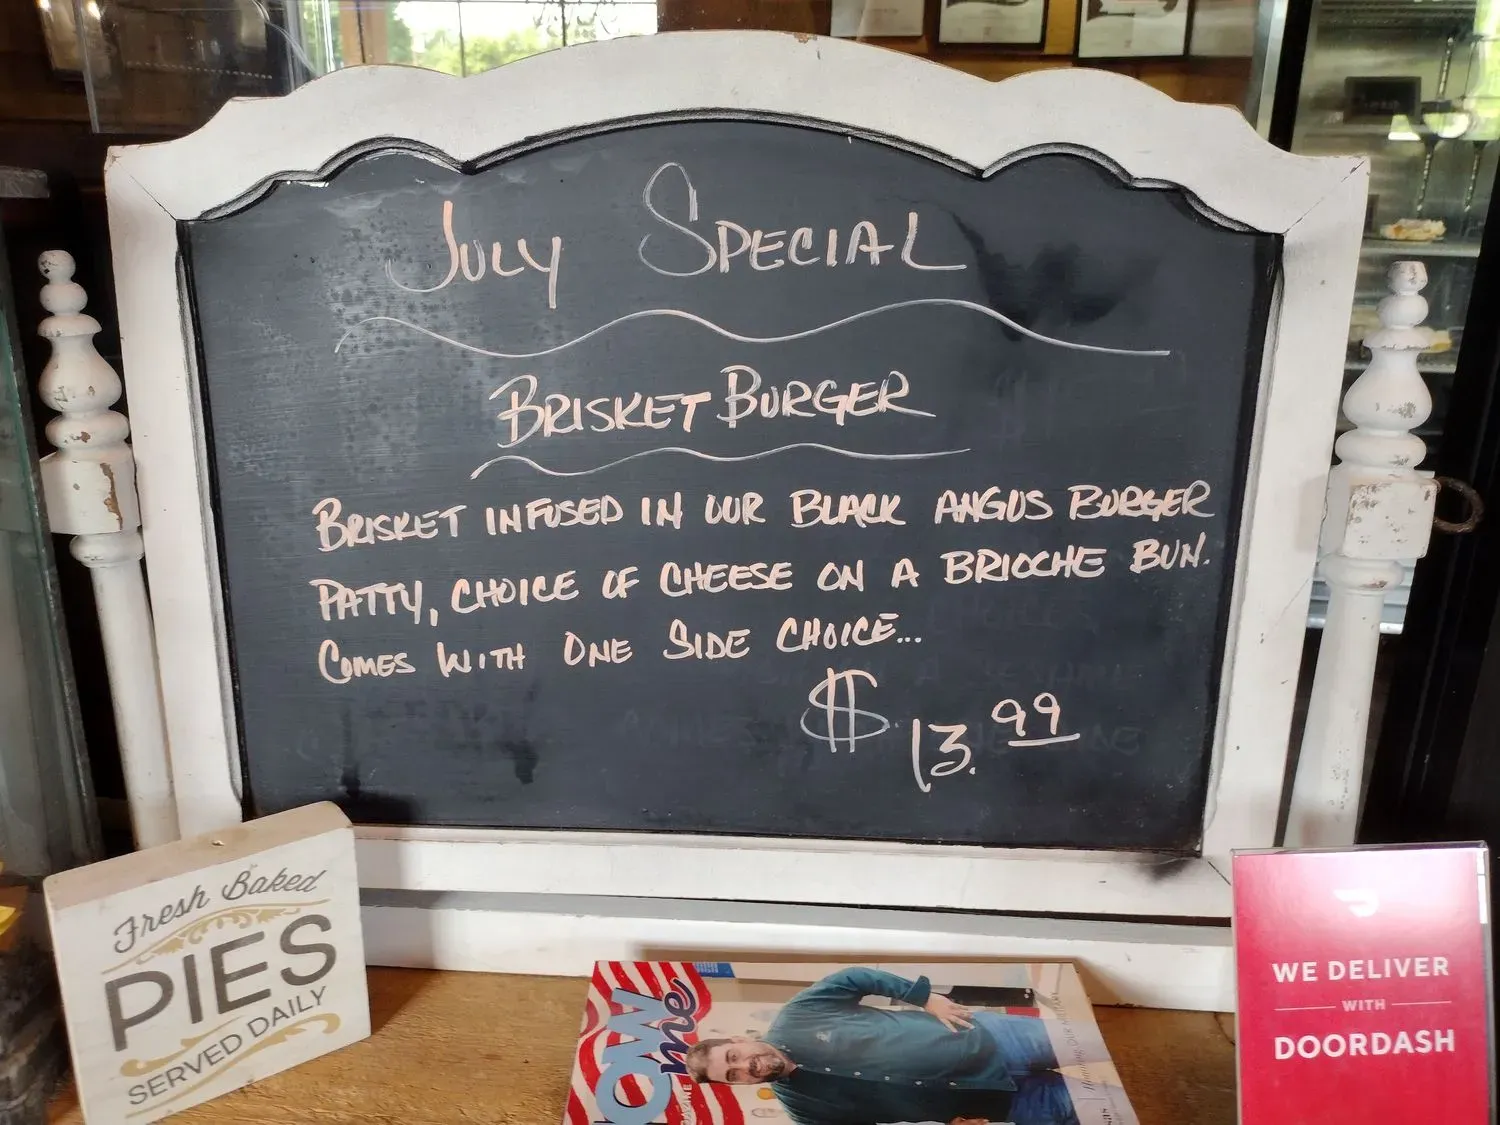 JULY SPECIAL
BRISKET BURGER
BRISKET INFUSED IN OUR BLACK ANGUS BURGER
PATTY, CHOICE OF CHEESE ON A BRIOCHE BUN.
COMES WITH ONE SIDE CHOICE...
$13.99
Fresh Baked
PIES
SERVED DAILY
me
WE DELIVER
WITH
DOORDASH